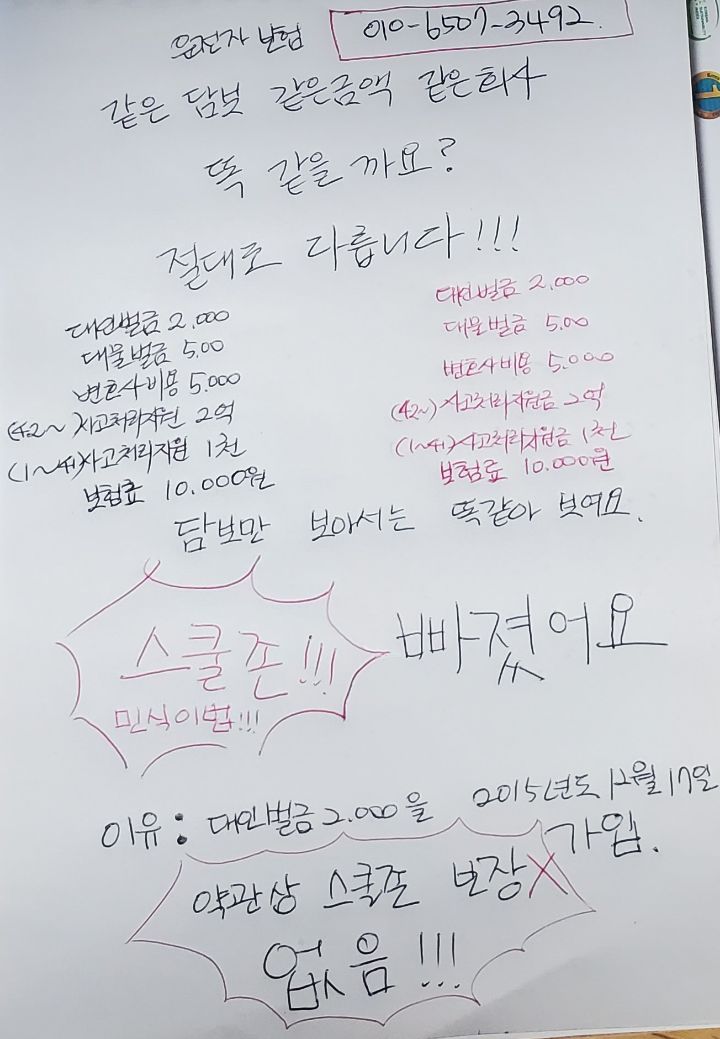 운전자 보험 010-6507-3492
같은 담보 같은금액 같은회사
똑 같을 까요?
절대로 다릅니다!!!
대인벌금 2,000
대물벌금 5.00
변호사비용 5.000
(42~)사고처리지원 2억
(1~41)사고처리지원 1천
보험료 10.000원
대인벌금 2.000
대물벌금 5.00
변호사비용 5.000
(42~)사고처리지원금 2억
(1~41)사고처리지원금 1천
보험료 10.000원
담보만 보아서는 똑같아 보여요.
스쿨존!!!
민식이법!!!
빠졌어요
이유: 대인벌금 2.000을 2015년도 12월 17일
가입.
약관상 스쿨존 보장X
없음!!!